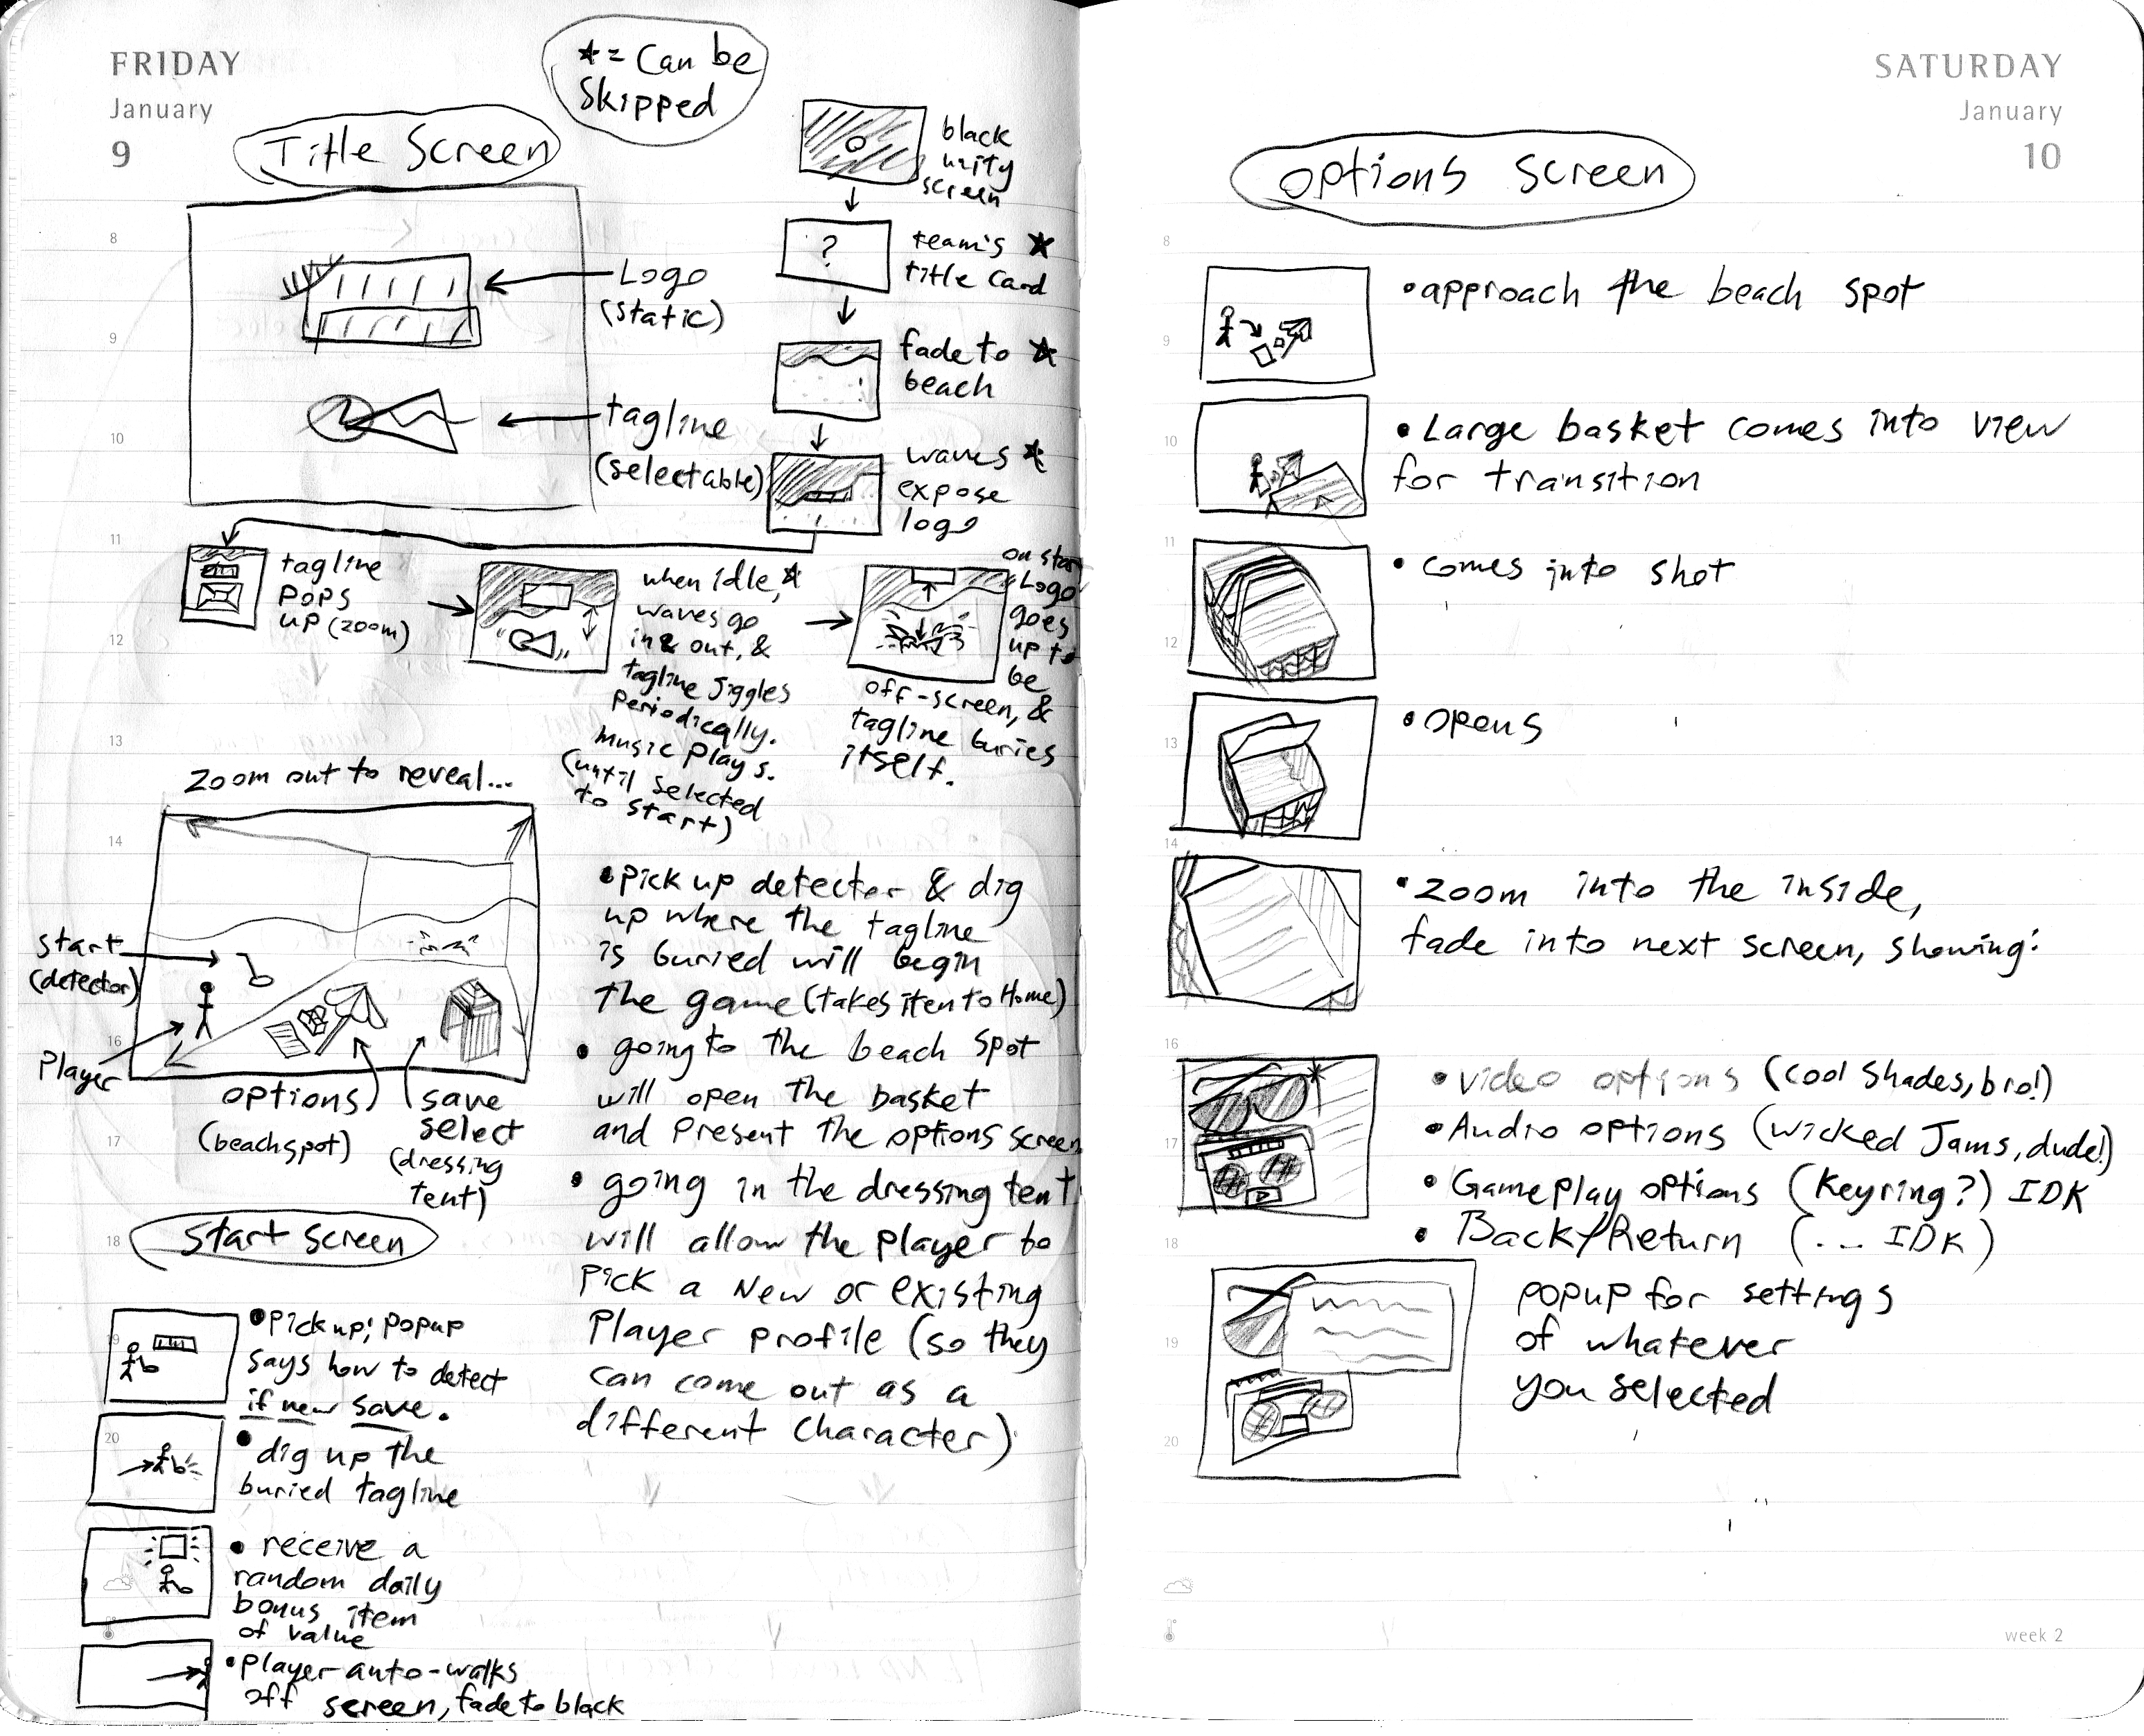 FRIDAY
January
9
★ = Can be
Skipped
Title Screen
Logo
(static)
tagline
(selectable)
black
unity
screen
?
team's ★
title card
fade to ★
beach
waves ★
expose
logo
tagline
pops
up (zoom)
when idle, ★
waves go
in & out, &
tagline jiggles
periodically.
music plays.
(until selected
to start)
on start
Logo
goes
up to
be
off-screen, &
tagline buries
itself.
zoom out to reveal...
start
(detector)
Player
options
(beach spot)
save
select
(dressing
tent)
• pick up detector & dig
up where the tagline
is buried will begin
the game (takes item to Home)
• going to the beach spot
will open the basket
and present the options screen
• going in the dressing tent
will allow the player to
pick a new or existing
player profile (so they
can come out as a
different character)
Start screen
• Pick up; popup
says how to detect
if new save.
• dig up the
buried tagline
• receive a
random daily
bonus item
of value
• player auto-walks
off screen, fade to black
8
9
10
11
12
13
14
16
17
18
19
20
SATURDAY
January
10
options screen
• approach the beach spot
• Large basket comes into view
for transition
• comes into shot
• opens
• zoom into the inside,
fade into next screen, showing:
• video options (cool shades, bro!)
• Audio options (wicked Jams, dude!)
• Gameplay options (Keyring?) IDK
• Back/Return (... IDK)
popup for settings
of whatever
you selected
8
9
10
11
12
13
14
16
17
18
19
20
week 2